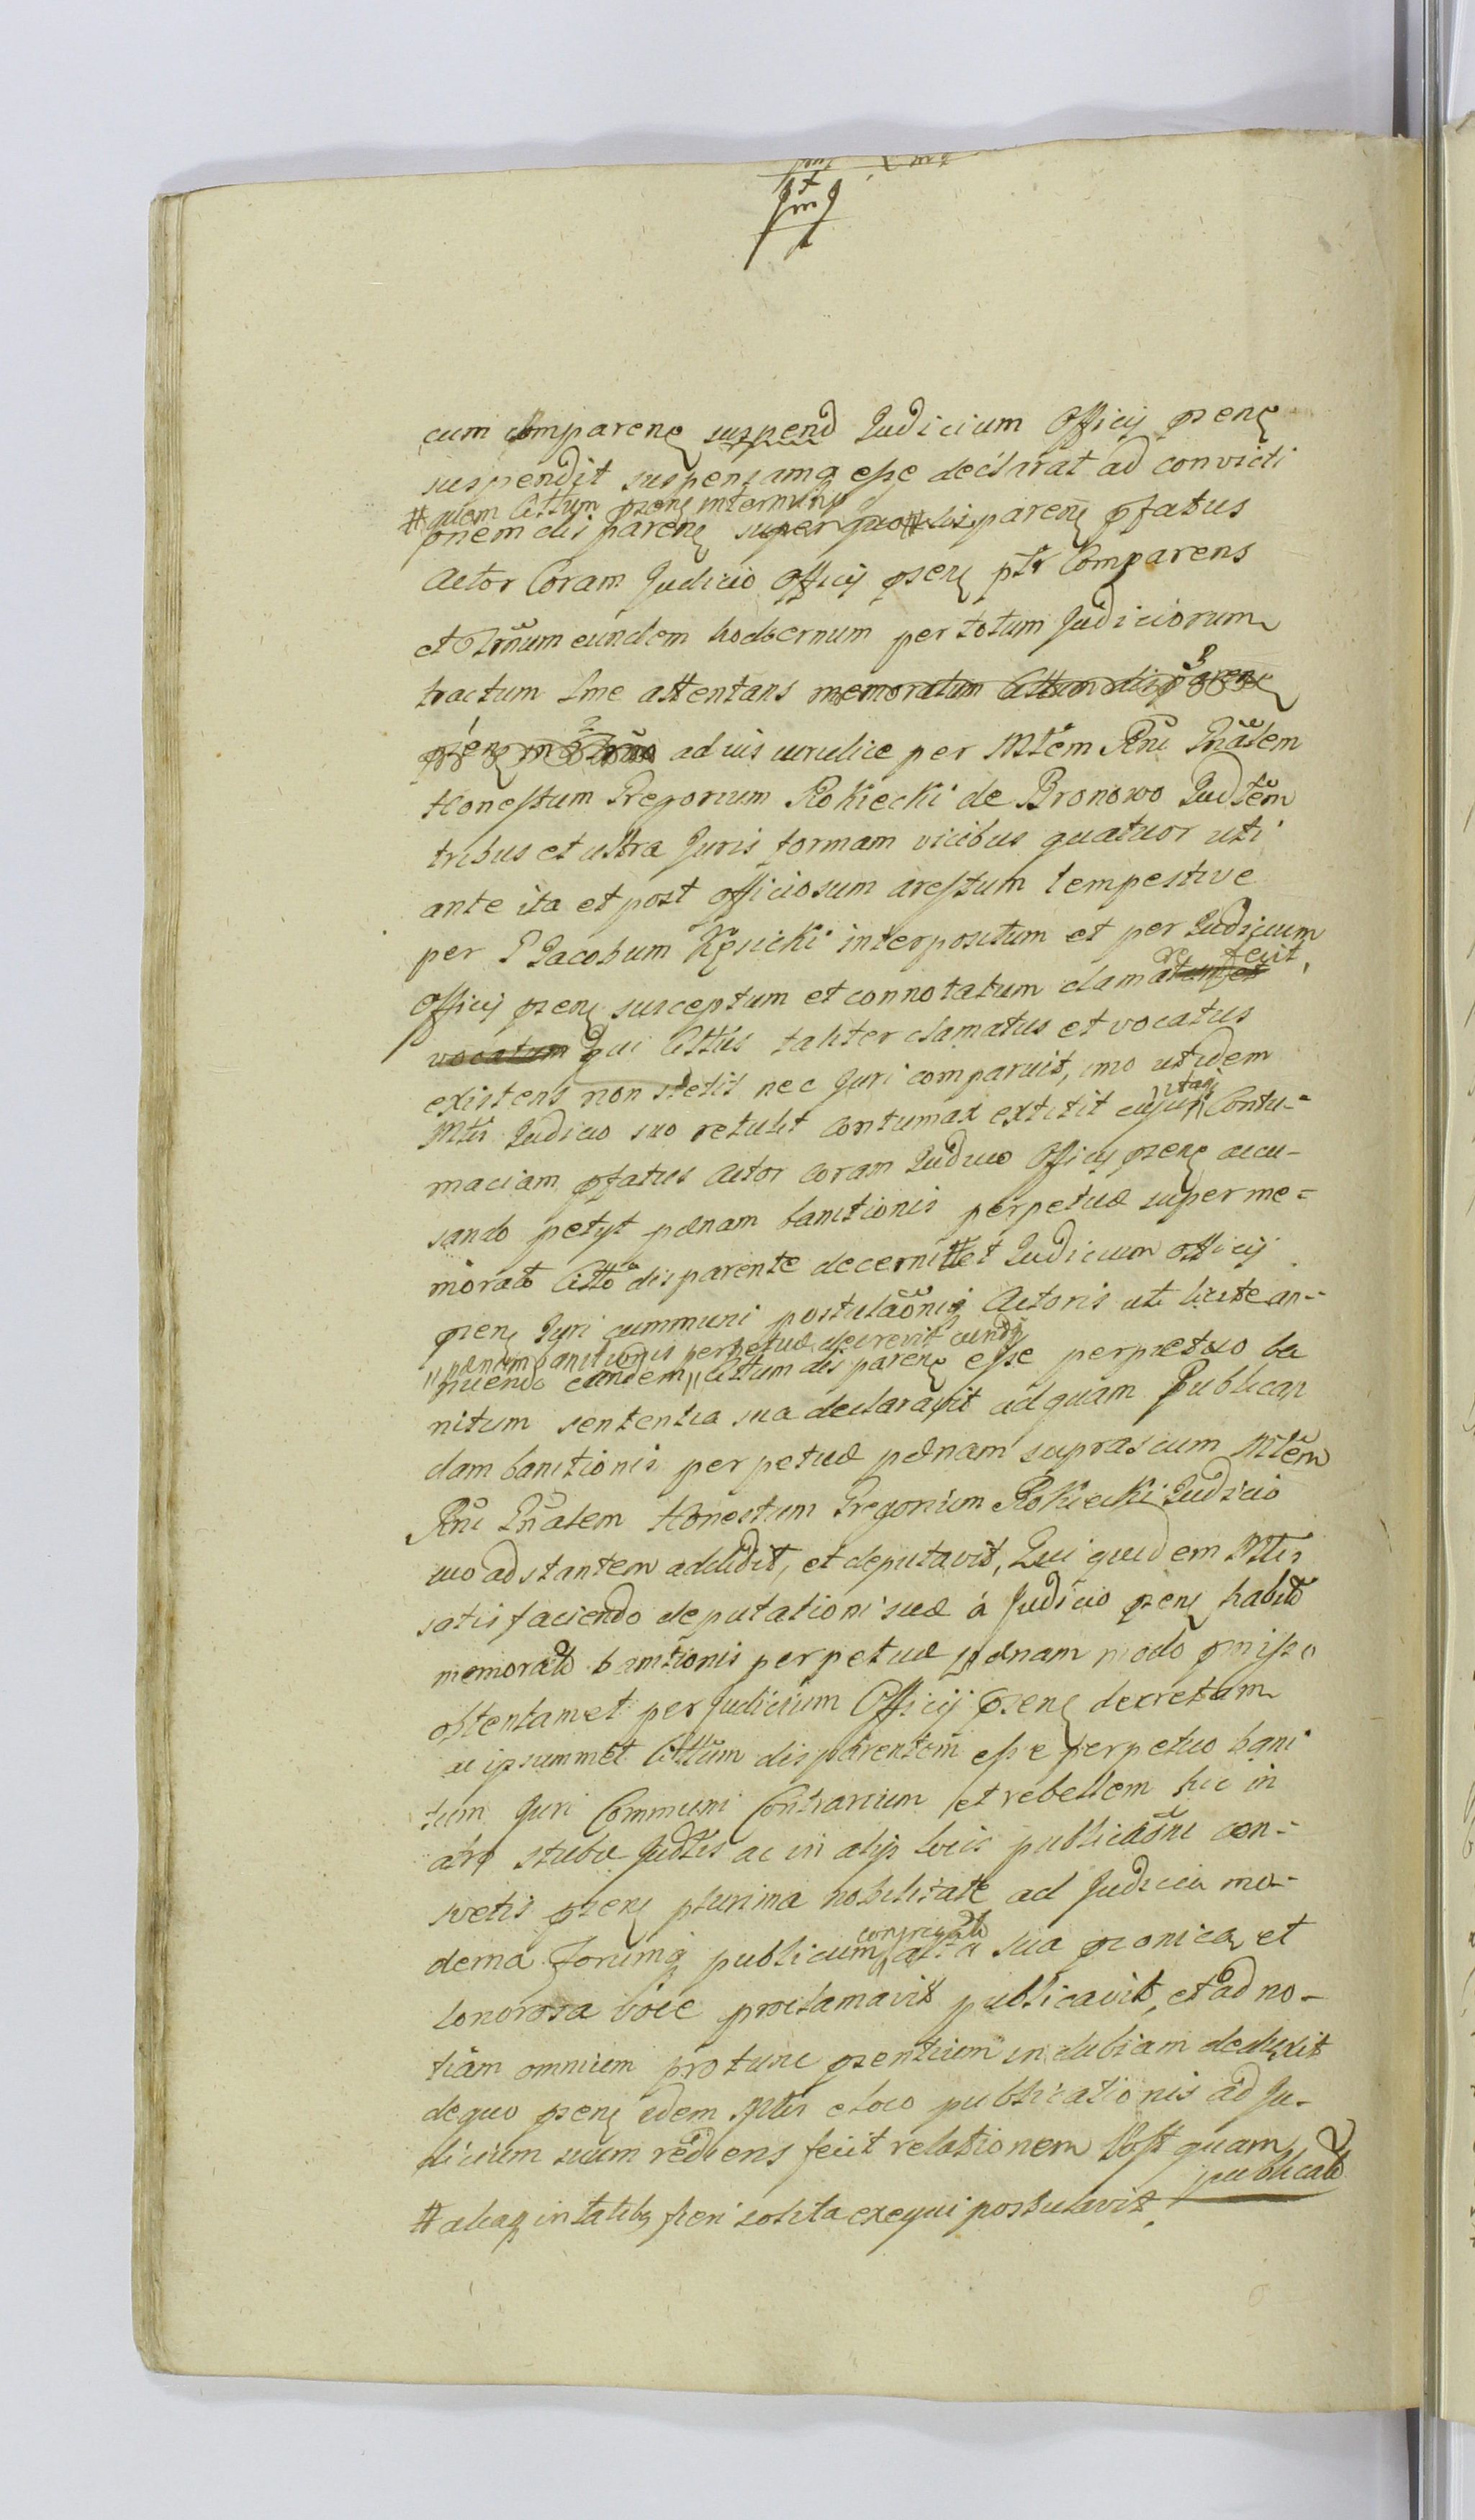 cum comparenę suspend Judicium Officij pzenę
suspendit suspensamq esse declarat ad convicti
#quem Cittum pzenę in termino
onem disparenę super quo # disparenę pfatus
Actor Coram Judicio Officij pzenę ptr Comparens
et Trnum eundem hodiernum per totum Judiciorum
tractum lme attentans memoratum Cittum disparenę
pzenę in Trno ad uis iuridice per Mtlem Rni Gnalem
Honestum Gregorium Rokiecki de Bronowo Judtem
tribus et ultra Juris formam vicibus quatuor uti
ante ita et post officiosum arestum tempestive
per P Jacobum Kęsicki interpositum et per Judicium
re fecit,
Officij pzenę susceptum et connotatum clamatum et
vocatum qui Cittus taliter clamatus et vocatus
existens non stetit nec Juri comparuit, imo ut idem
Mtlis Judicio suo retulit contumax extitit cujus Contu-
maciam pfatus Actor coram Judicio Officij pzenę accu-
sando petyt pænam banitionis perpetuæ super me-
morato Citto disparente decerni et Judicium officij
pzenę Juri cummuni postulaoniq Actoris uti licite an-
"pænam banitionis perpetuæ decrevit
nuendo eundem " Cittum disparenę esse perpetuo ba
nitum sententia sua declaravit ad quam Publican
dam banitionis perpetuæ pænam suprascum Mtlem
Rni Gnalem Honestum Gregorium Rokiecki Judicio
suo adstantem addidit, et deputavit, Qui quidem Mtlis
satisfaciendo deputationi suæ á Judicio pzenę habito
memorato banitionis perpetuæ pænam modo pmisso
obtentam et per Judicium Officij pzenę decretam
ac ipsummet Cittum disparentem esse perpetuo bani
tum Juri Communi Contrarium et rebellem hic in
atrio stubæ Judtis ac in alijs locis publicaoni con-
svetis pzenę plurima nobilitate ad Judicia mo-
congregato
derna forumq publicum alta sua pzonica et
sonorosa voce proclamavit publicavit, et ad no-
tiam omnium protunc pzentium indubiam deduxit
de quo pzenę idem Mtlis e loco publicationis ad Ju-
dicium suum rediens fecit relationem Post quam
publicato
# aliaq in talibq fieri solita exequi postulavit.